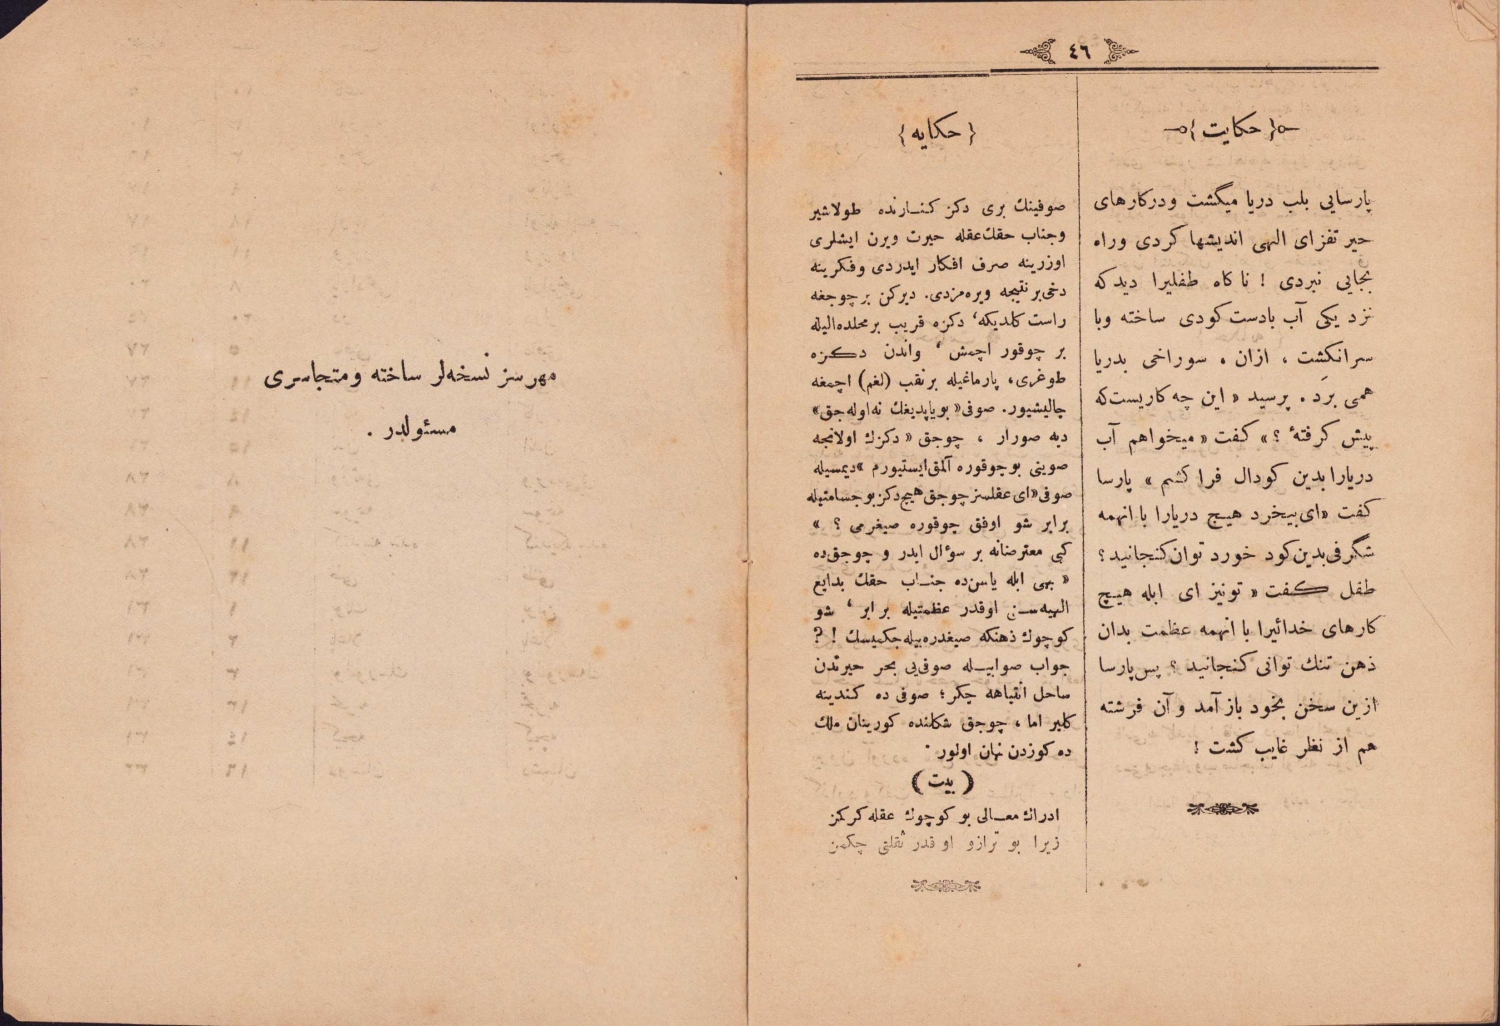 ٤٦
﴿ حكایت ﴾
پارسایی بلب دریا میگشت ودركارهای
حیرتفزای الهی اندیشها كردی وراه
بجایی نبردی ! ناكاه طفلیرا دیدكه
نزدیكی آب بادست كودی ساخته وبا
سرانكشت ، ازان ، سوراخی بدریا
همی برَد . پرسید « این چه كاریست كه
پیش كرفتهٔ ؟ » كفت « میخواهم آب
دریارا بدین كودال فراكشم » پارسا
كفت « ای بیخرد هیچ دریارا با انهمه
شگرفی بدین كود خورد توان كنجانید ؟
طفل كفت « تونیز ای ابله هیچ
كارهای خدائیرا با انهمه عظمت بدان
ذهن تنك توانی كنجانید ؟ پس پارسا
ازین سخن بخود باز آمد و آن فرشته
هم از نظر غایب كشت !
﴿ حكایه ﴾
صوفینك بری دكز كنارنده طولاشیر
وجناب حقك عقله حیرت ویرن ایشلری
اوزرینه صرف افكار ایدردی وفكرینه
دخی بر نتیجه ویره مزدی . دیركن بر چوجغه
راست كلدیكه ، دكزه قریب بر محلده الیله
بر چوقور اچمش ، واندن دكزه
طوغری ، پارماغیله بر نقب ( لغم ) اچمغه
چالیشیور . صوفی « بو یاپدیغك نه اوله جق »
دیه صورار ، چوجق « دكزك اولانجه
صوینی بو چوقوره آلمق ایستیورم » دیمسیله
صوفی « ای عقلسز چوجق هیچ دكز بو جسامتیله
برابر شو اوفق چوقوره صیغرمی ؟ »
كبی معترضانه بر سؤال ایدر و چوجق ده
« یهی ابله یاسن ده جناب حقك بدایع
الهیه سنی اوقدر عظمتیله برابر ، شو
كوچوك ذهنكه صیغدره بیله جكمیسك ! ?
جواب صوابیله صوفی یی بحر حیرتدن
ساحل انتباهه چكر ؛ صوفی ده كندینه
كلیر اما ، چوجق شكلنده كورینان ملك
ده كوزدن نهان اولور .
( بیت )
ادراك معالی بو كوچوك عقله كركمز
زیرا بو ترازو او قدر ثقلتی چكمن
مهرسز نسخه لر ساخته ومتجاسری
مسئولدر .